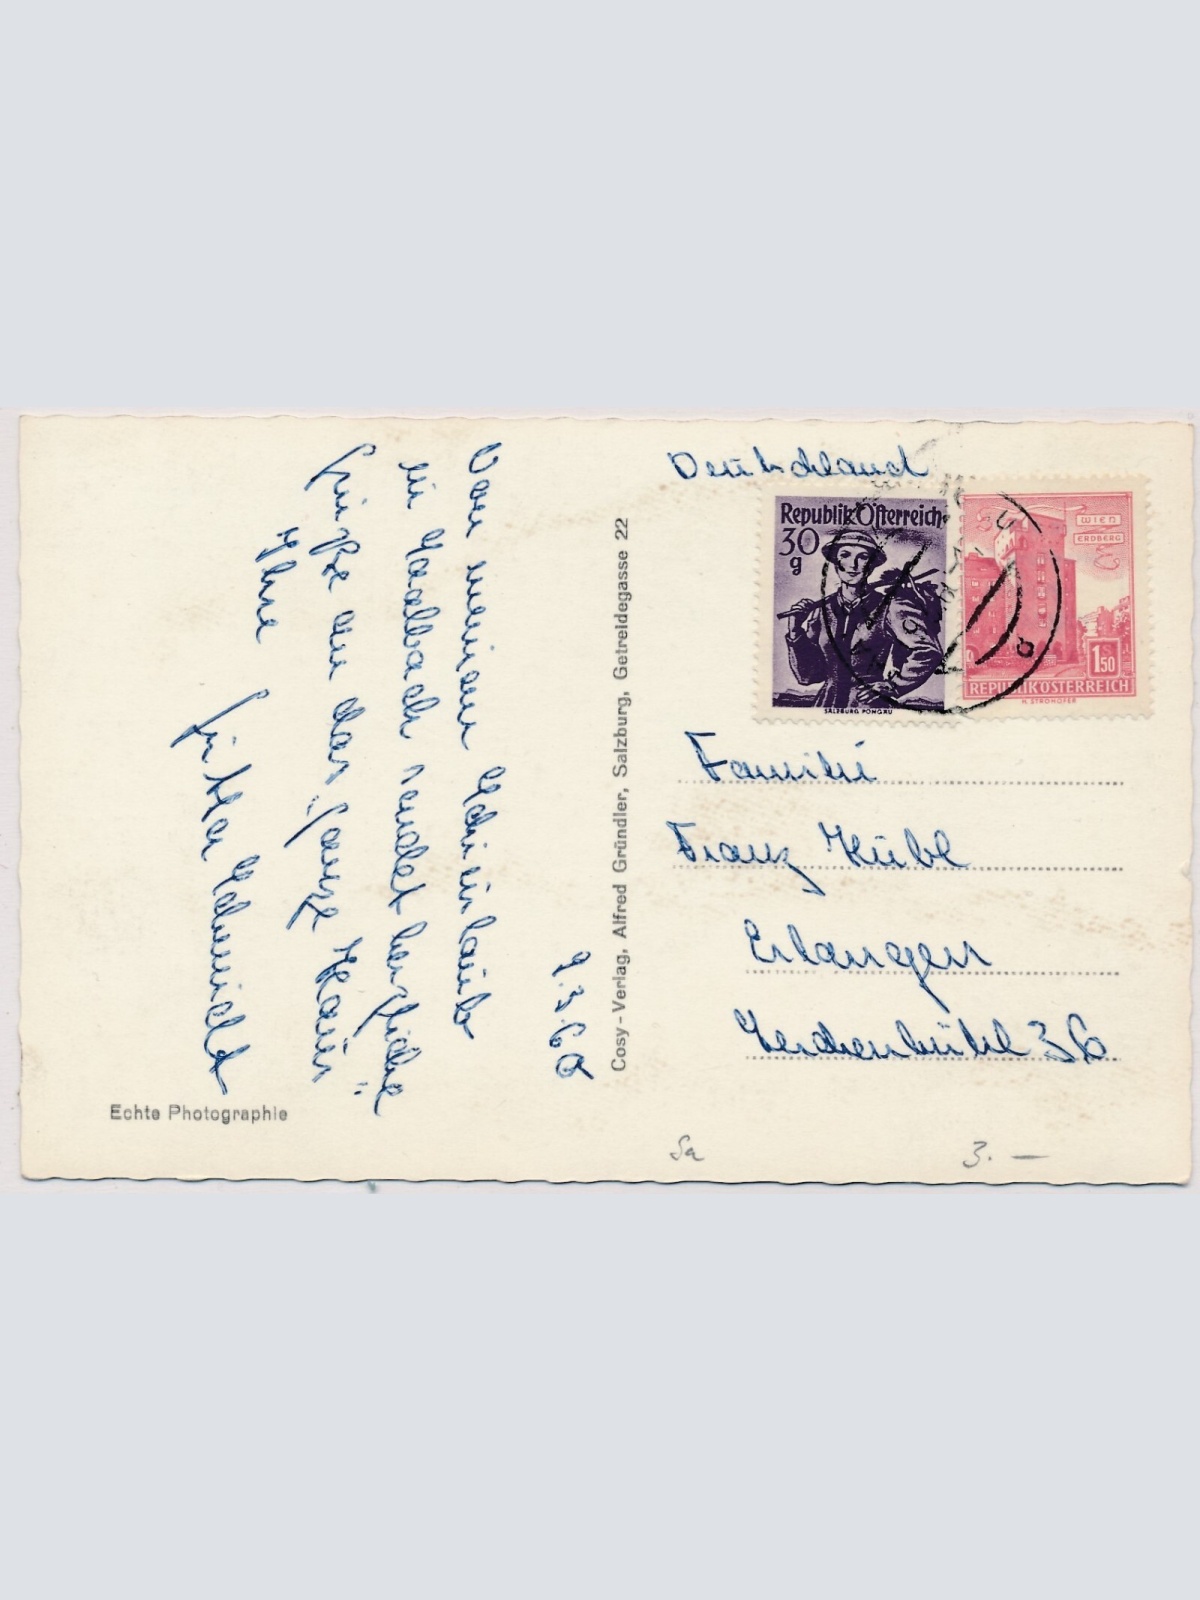 9.3.60
Von meinem Schiurlaub
in Saalbach sendet herzliche
Grüße an das „ganze Haus"
Ihre
Jutta Schmidt
Echte Photographie
Cosy-Verlag, Alfred Gründler, Salzburg, Getreidegasse 22
Deutschland
Republik Österreich
30
g
SALZBURG PONGAU
WIEN
ERDBERG
1.50
REPUBLIK ÖSTERREICH
H. STROHOFER
Familie
Franz Kübl
Erlangen
Lerchenbühl 36
Sa
3. —